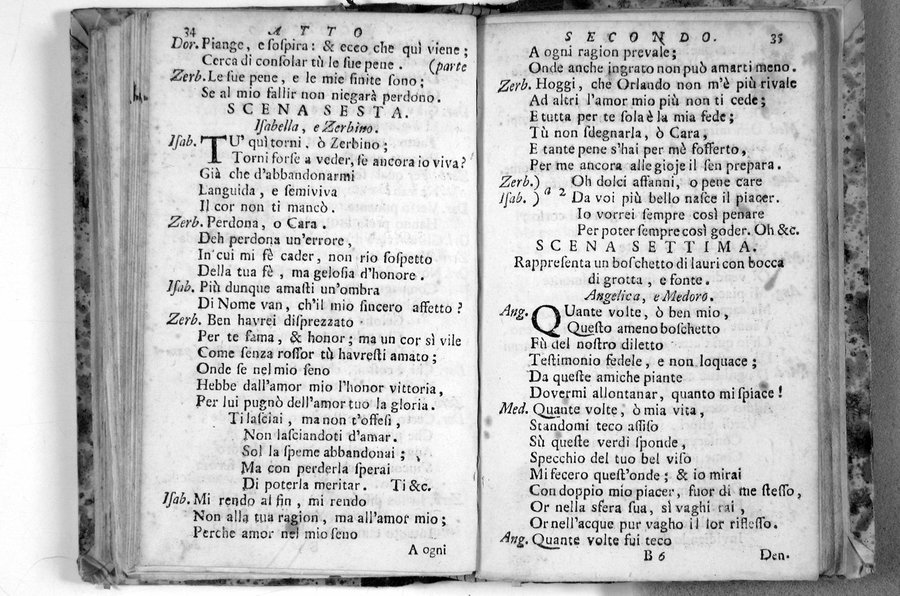 34 ATTO
Dor. Piange, e sospira: & ecco che quì viene;
Cerca di consolar tù le sue pene. (parte
Zerb. Le sue pene, e le mie finite sono;
Se al mio fallir non niegarà perdono.
SCENA SESTA.
Isabella, e Zerbino.
Isab. TU' quì torni, ò Zerbino;
Torni forse a veder, se ancora io viva?
Già che d'abbandonarmi
Languida, e semiviva
Il cor non ti mancò.
Zerb. Perdona, o Cara.
Deh perdona un'errore,
In cui mi fè cader, non rio sospetto
Della tua fè, ma gelosia d'honore.
Isab. Più dunque amasti un'ombra
Di Nome van, ch'il mio sincero affetto?
Zerb. Ben havrei disprezzato
Per te fama, & honor; ma un cor sì vile
Come senza rossor tù havresti amato;
Onde se nel mio seno
Hebbe dall'amor mio l'honor vittoria,
Per lui pugnò dell'amor tuo la gloria.
Ti lasciai, ma non t'offesi,
Non lasciandoti d'amar.
Sol la speme abbandonai;
Ma con perderla sperai
Di poterla meritar. Ti &c.
Isab. Mi rendo al fin, mi rendo
Non alla tua ragion, ma all'amor mio;
Perche amor nel mio seno
A ogni
SECONDO. 35
A ogni ragion prevale;
Onde anche ingrato non può amarti meno.
Zerb. Hoggi, che Orlando non m'è più rivale
Ad altri l'amor mio più non ti cede;
E tutta per te sola è la mia fede;
Tù non sdegnarla, ò Cara,
E tante pene s'hai per mè sofferto,
Per me ancora alle gioje il sen prepara.
Zerb.) Oh dolci affanni, o pene care
Isab. ) a 2 Da voi più bello nasce il piacer.
Io vorrei sempre così penare
Per poter sempre così goder. Oh &c.
SCENA SETTIMA.
Rappresenta un boschetto di lauri con bocca
di grotta, e fonte.
Angelica, e Medoro.
Ang. QUante volte, ò ben mio,
Questo ameno boschetto
Fù del nostro diletto
Testimonio fedele, e non loquace;
Da queste amiche piante
Dovermi allontanar, quanto mi spiace!
Med. Quante volte, ò mia vita,
Standomi teco assiso
Sù queste verdi sponde,
Specchio del tuo bel viso
Mi fecero quest'onde; & io mirai
Con doppio mio piacer, fuor di me stesso,
Or nella sfera sua, sì vaghi rai,
Or nell'acque pur vagho il lor riflesso.
Ang. Quante volte fui teco
B 6 Den-